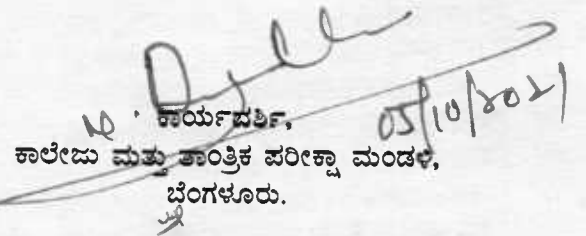 05/10/2021
ಕಾರ್ಯದರ್ಶಿ,
ಕಾಲೇಜು ಮತ್ತು ತಾಂತ್ರಿಕ ಪರೀಕ್ಷಾ ಮಂಡಳಿ,
ಬೆಂಗಳೂರು.